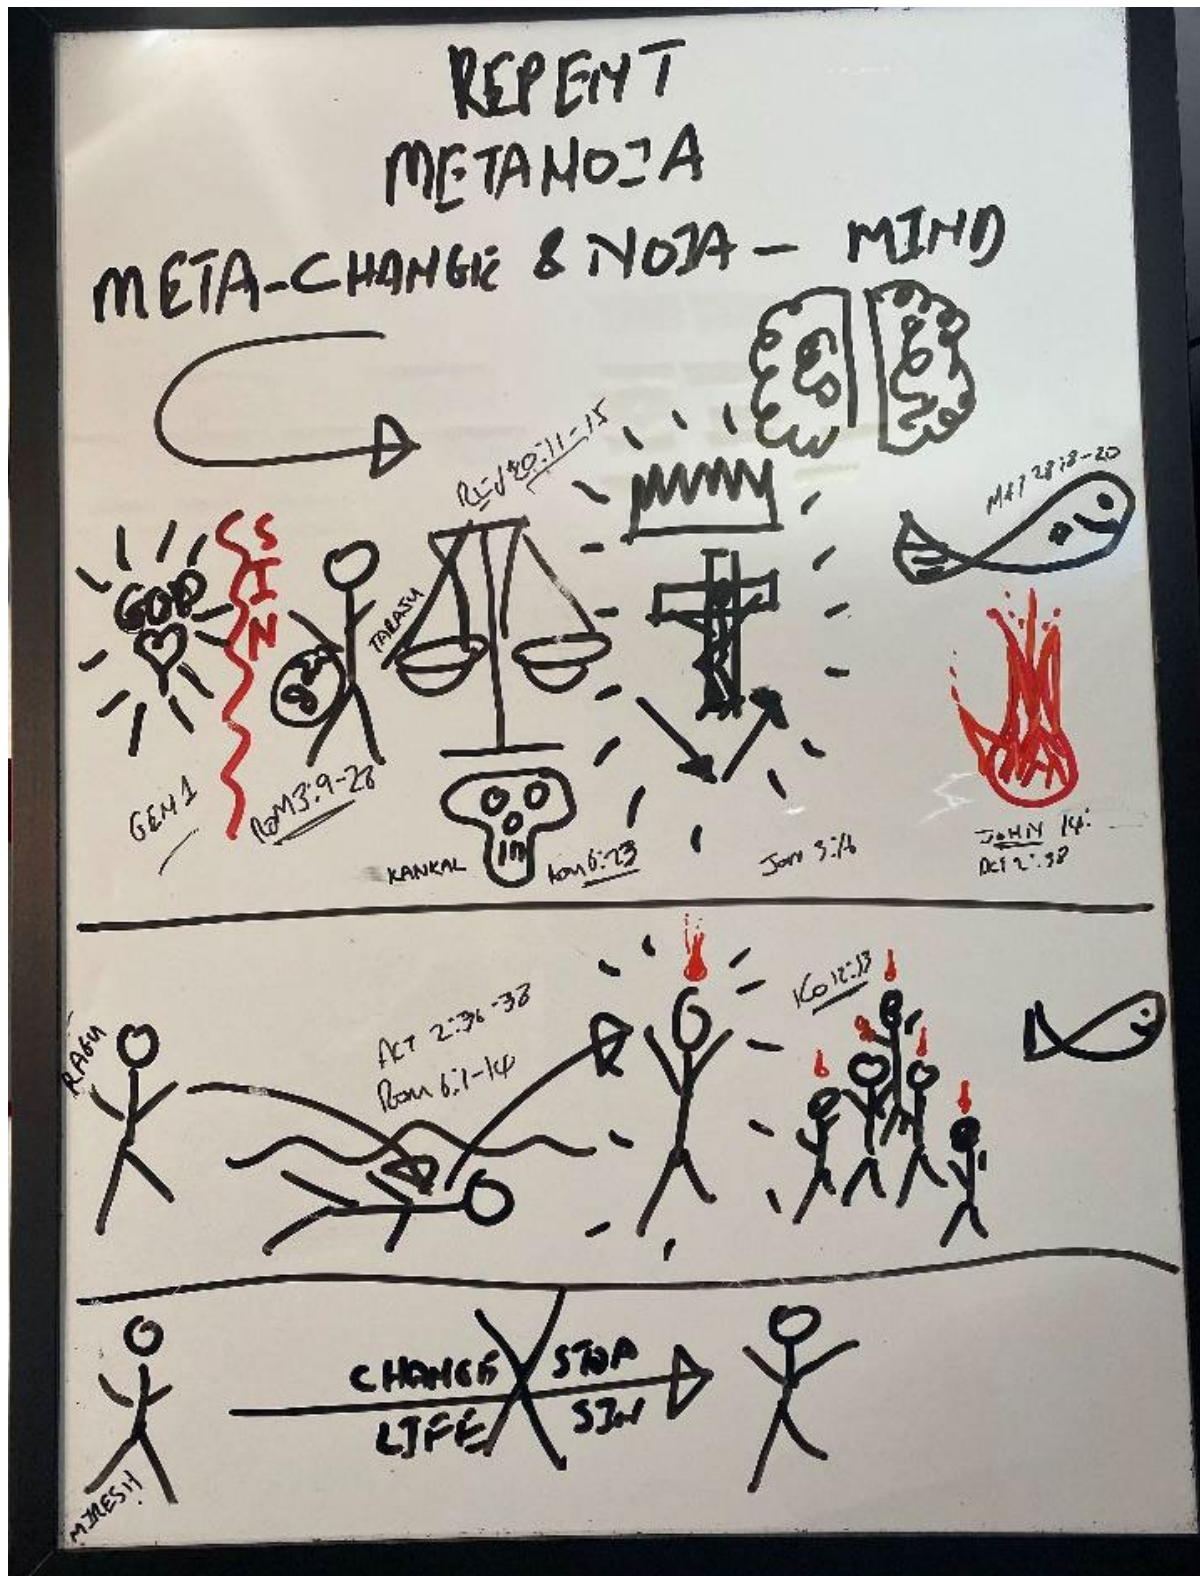 REPENT
METANOIA
META-CHANGE & NOIA - MIND
REV 20:11-15
MAT 28:18-20
GOD
SIN
TARAJU
GEN 1
ROM 3:9-28
KANKAL
Rom 6:23
JOHN 14:
ACT 2:38
RAGU
ACT 2:36-38
Rom 6:1-14
1CO 12:13
CHANGE STOP
LIFE SIN